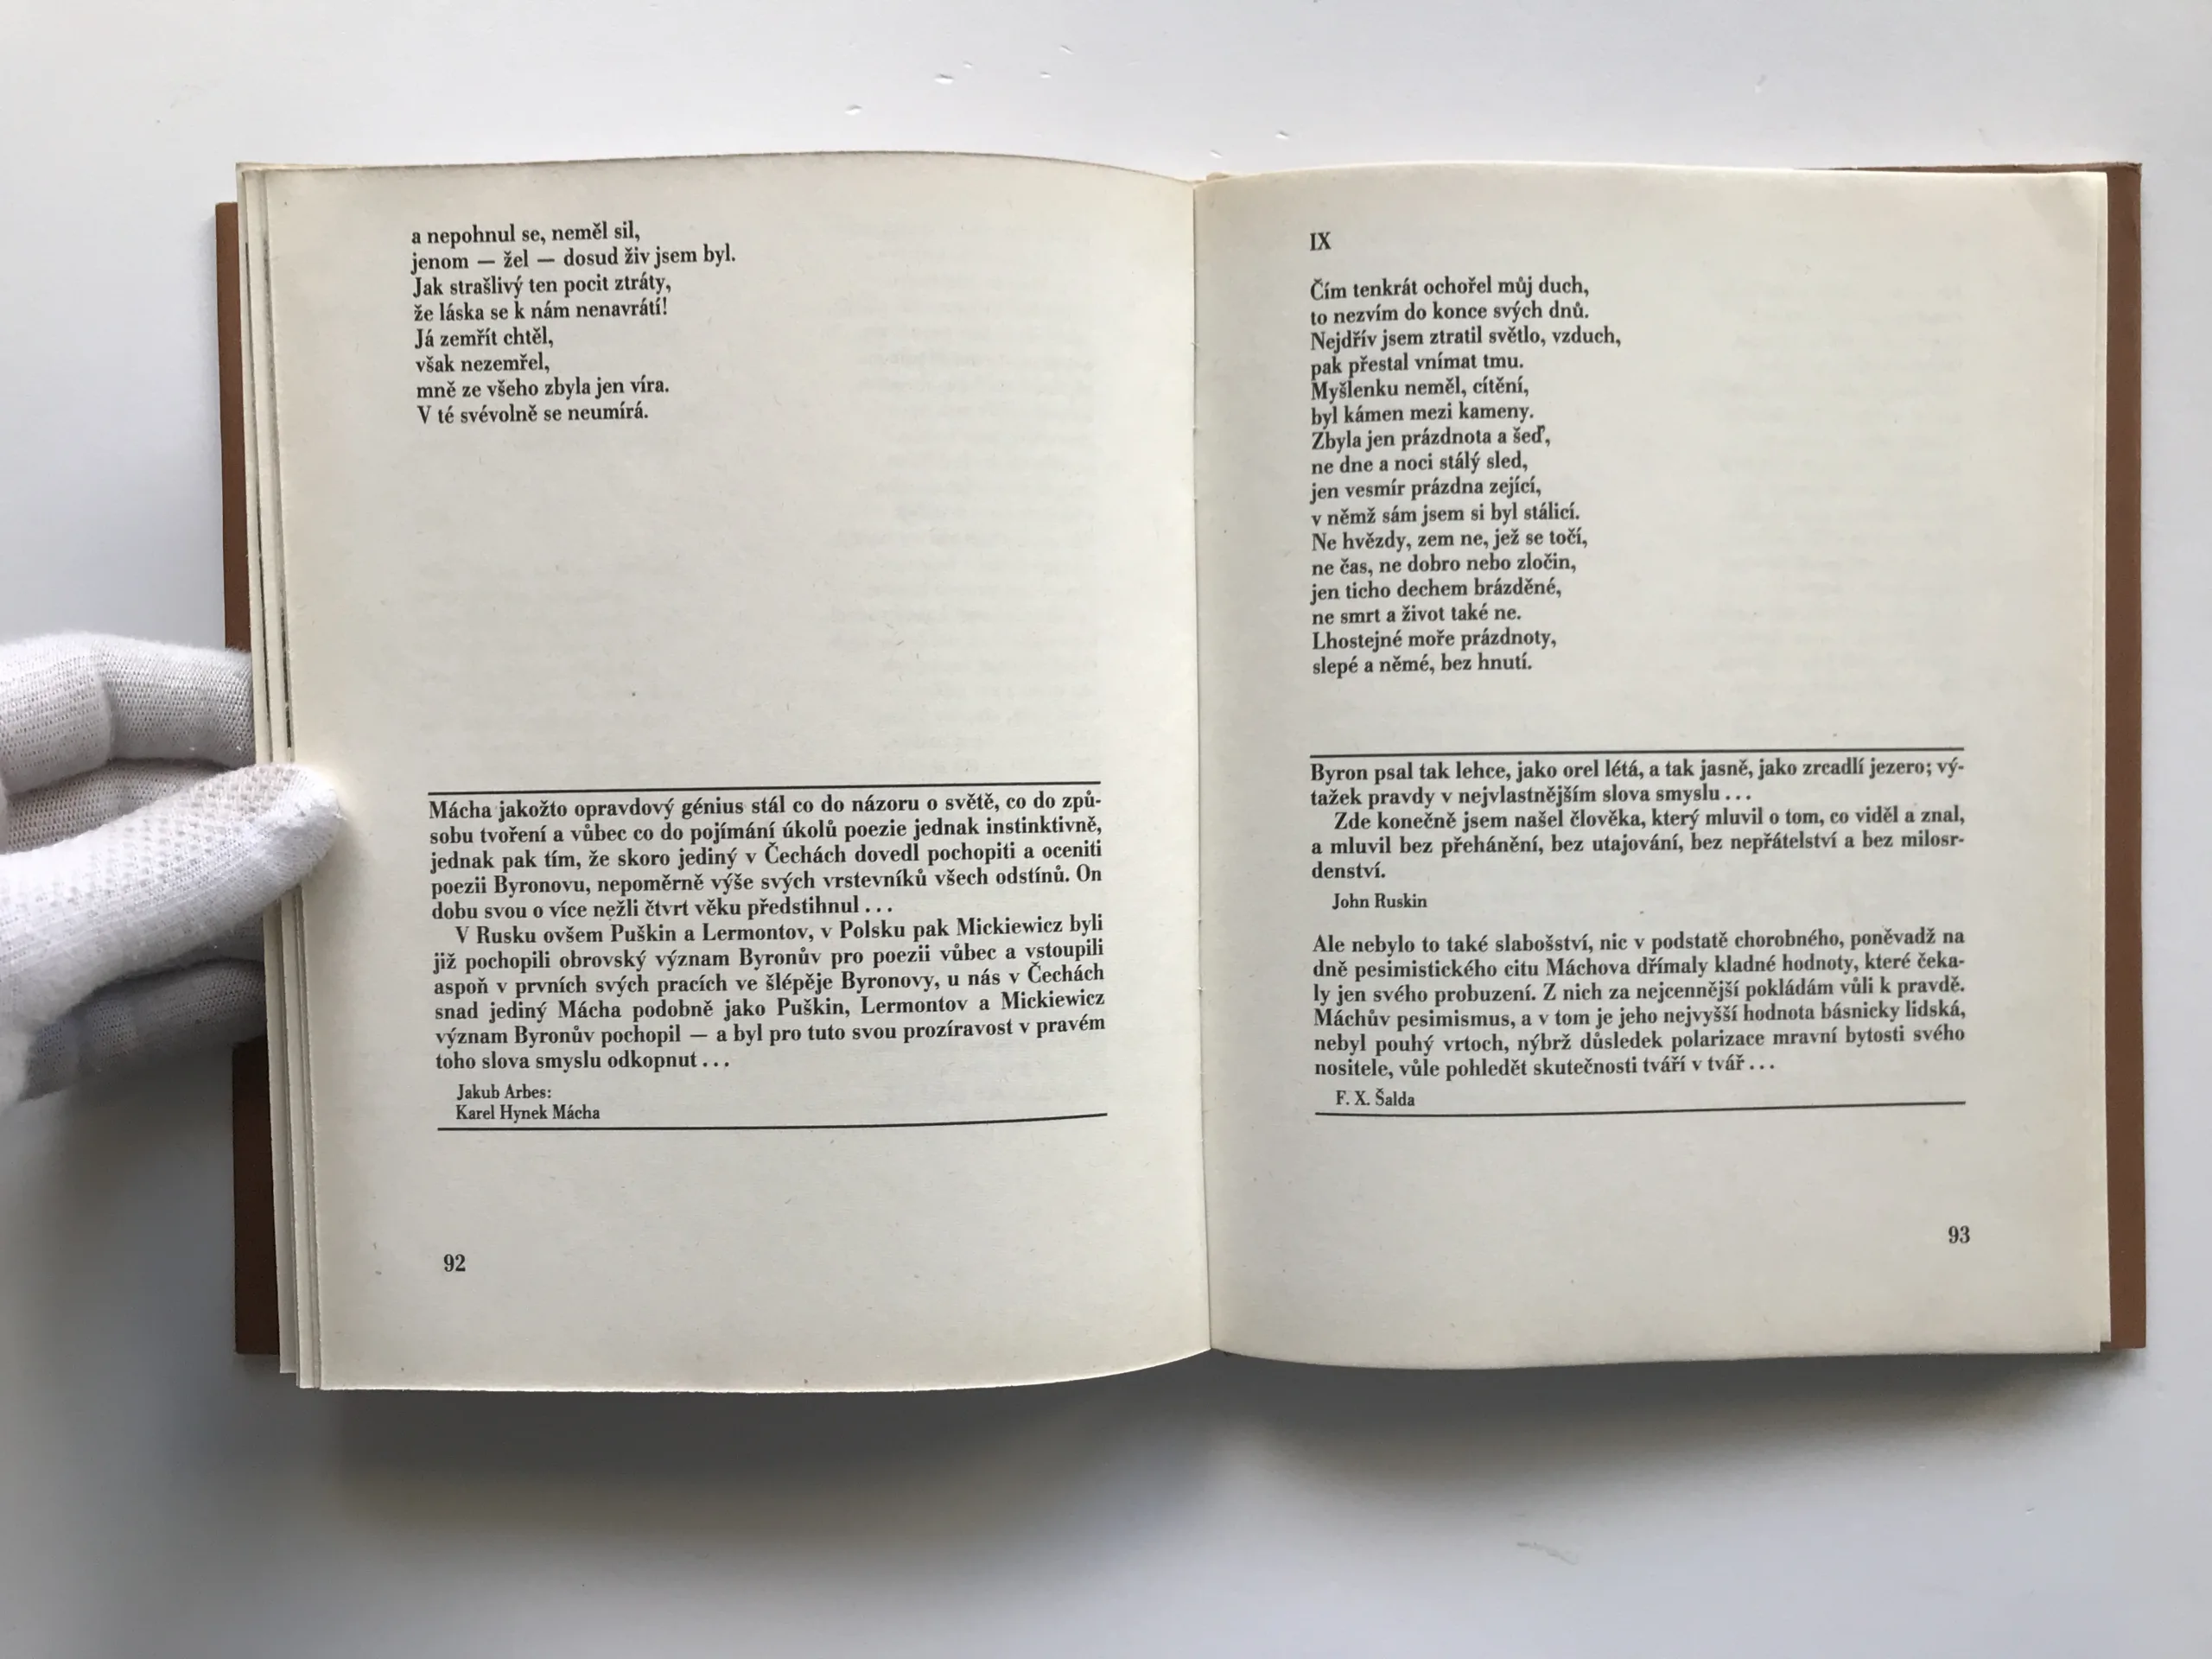 a nepohnul se, neměl sil,
jenom — žel — dosud živ jsem byl.
Jak strašlivý ten pocit ztráty,
že láska se k nám nenavrátí!
Já zemřít chtěl,
však nezemřel,
mně ze všeho zbyla jen víra.
V té svévolně se neumírá.
Mácha jakožto opravdový génius stál co do názoru o světě, co do způ-
sobu tvoření a vůbec co do pojímání úkolů poezie jednak instinktivně,
jednak pak tím, že skoro jediný v Čechách dovedl pochopiti a oceniti
poezii Byronovu, nepoměrně výše svých vrstevníků všech odstínů. On
dobu svou o více nežli čtvrt věku předstihnul...
V Rusku ovšem Puškin a Lermontov, v Polsku pak Mickiewicz byli
již pochopili obrovský význam Byronův pro poezii vůbec a vstoupili
aspoň v prvních svých pracích ve šlépěje Byronovy, u nás v Čechách
snad jediný Mácha podobně jako Puškin, Lermontov a Mickiewicz
význam Byronův pochopil — a byl pro tuto svou prozíravost v pravém
toho slova smyslu odkopnut...
Jakub Arbes:
Karel Hynek Mácha
92
IX
Čím tenkrát ochořel můj duch,
to nezvím do konce svých dnů.
Nejdřív jsem ztratil světlo, vzduch,
pak přestal vnímat tmu.
Myšlenku neměl, cítění,
byl kámen mezi kameny.
Zbyla jen prázdnota a šeď,
ne dne a noci stálý sled,
jen vesmír prázdna zející,
v němž sám jsem si byl stálicí.
Ne hvězdy, zem ne, jež se točí,
ne čas, ne dobro nebo zločin,
jen ticho dechem brázděné,
ne smrt a život také ne.
Lhostejné moře prázdnoty,
slepé a němé, bez hnutí.
Byron psal tak lehce, jako orel létá, a tak jasně, jako zrcadlí jezero; vý-
tažek pravdy v nejvlastnějším slova smyslu...
Zde konečně jsem našel člověka, který mluvil o tom, co viděl a znal,
a mluvil bez přehánění, bez utajování, bez nepřátelství a bez milosr-
denství.
John Ruskin
Ale nebylo to také slabošství, nic v podstatě chorobného, poněvadž na
dně pesimistického citu Máchova dřímaly kladné hodnoty, které čeka-
ly jen svého probuzení. Z nich za nejcennější pokládám vůli k pravdě.
Máchův pesimismus, a v tom je jeho nejvyšší hodnota básnicky lidská,
nebyl pouhý vrtoch, nýbrž důsledek polarizace mravní bytosti svého
nositele, vůle pohledět skutečnosti tváří v tvář...
F. X. Šalda
93